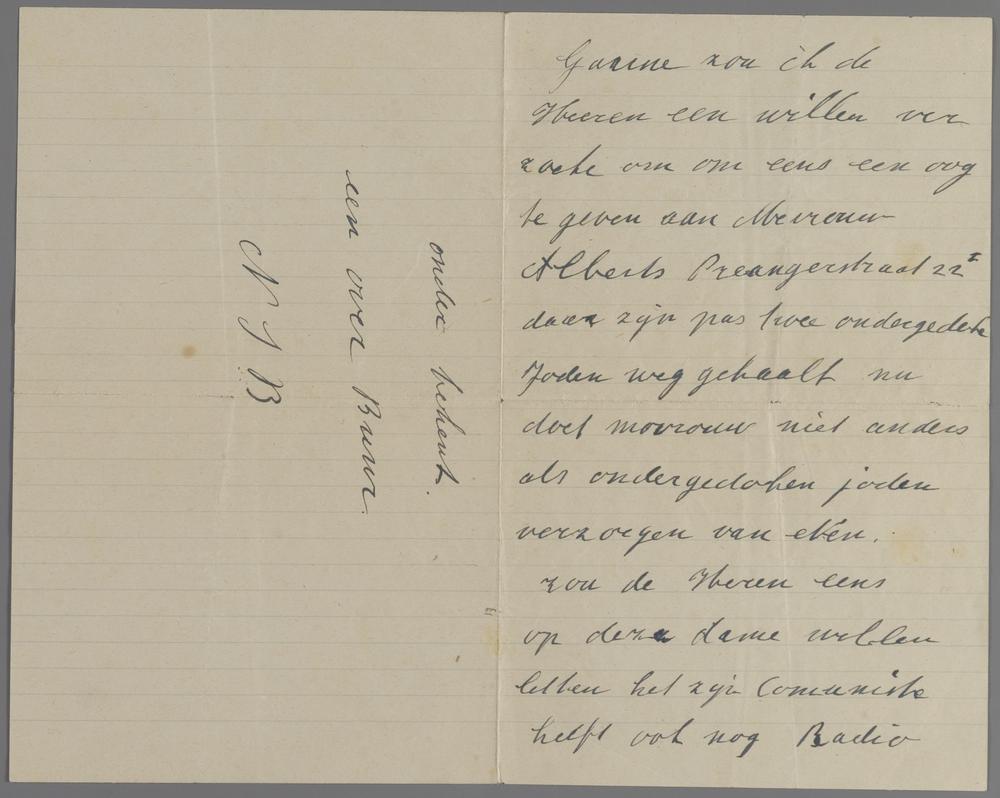 Gaarne zou ik de
Heeren een willen ver
zoeke om om eens een oog
te geven aan Mevrouw
Alberts Preangerstraat 22 I
daar zijn pas twee ondergedoke
Joden weg gehaalt nu
doet movrouw niet anders
als ondergedoken joden
verzorgen van eten.
zou de Heren eens
op deze dame willen
letten het zijn Comuniste
heeft ook nog Radio
onder bekent.
een over Buur
N S B